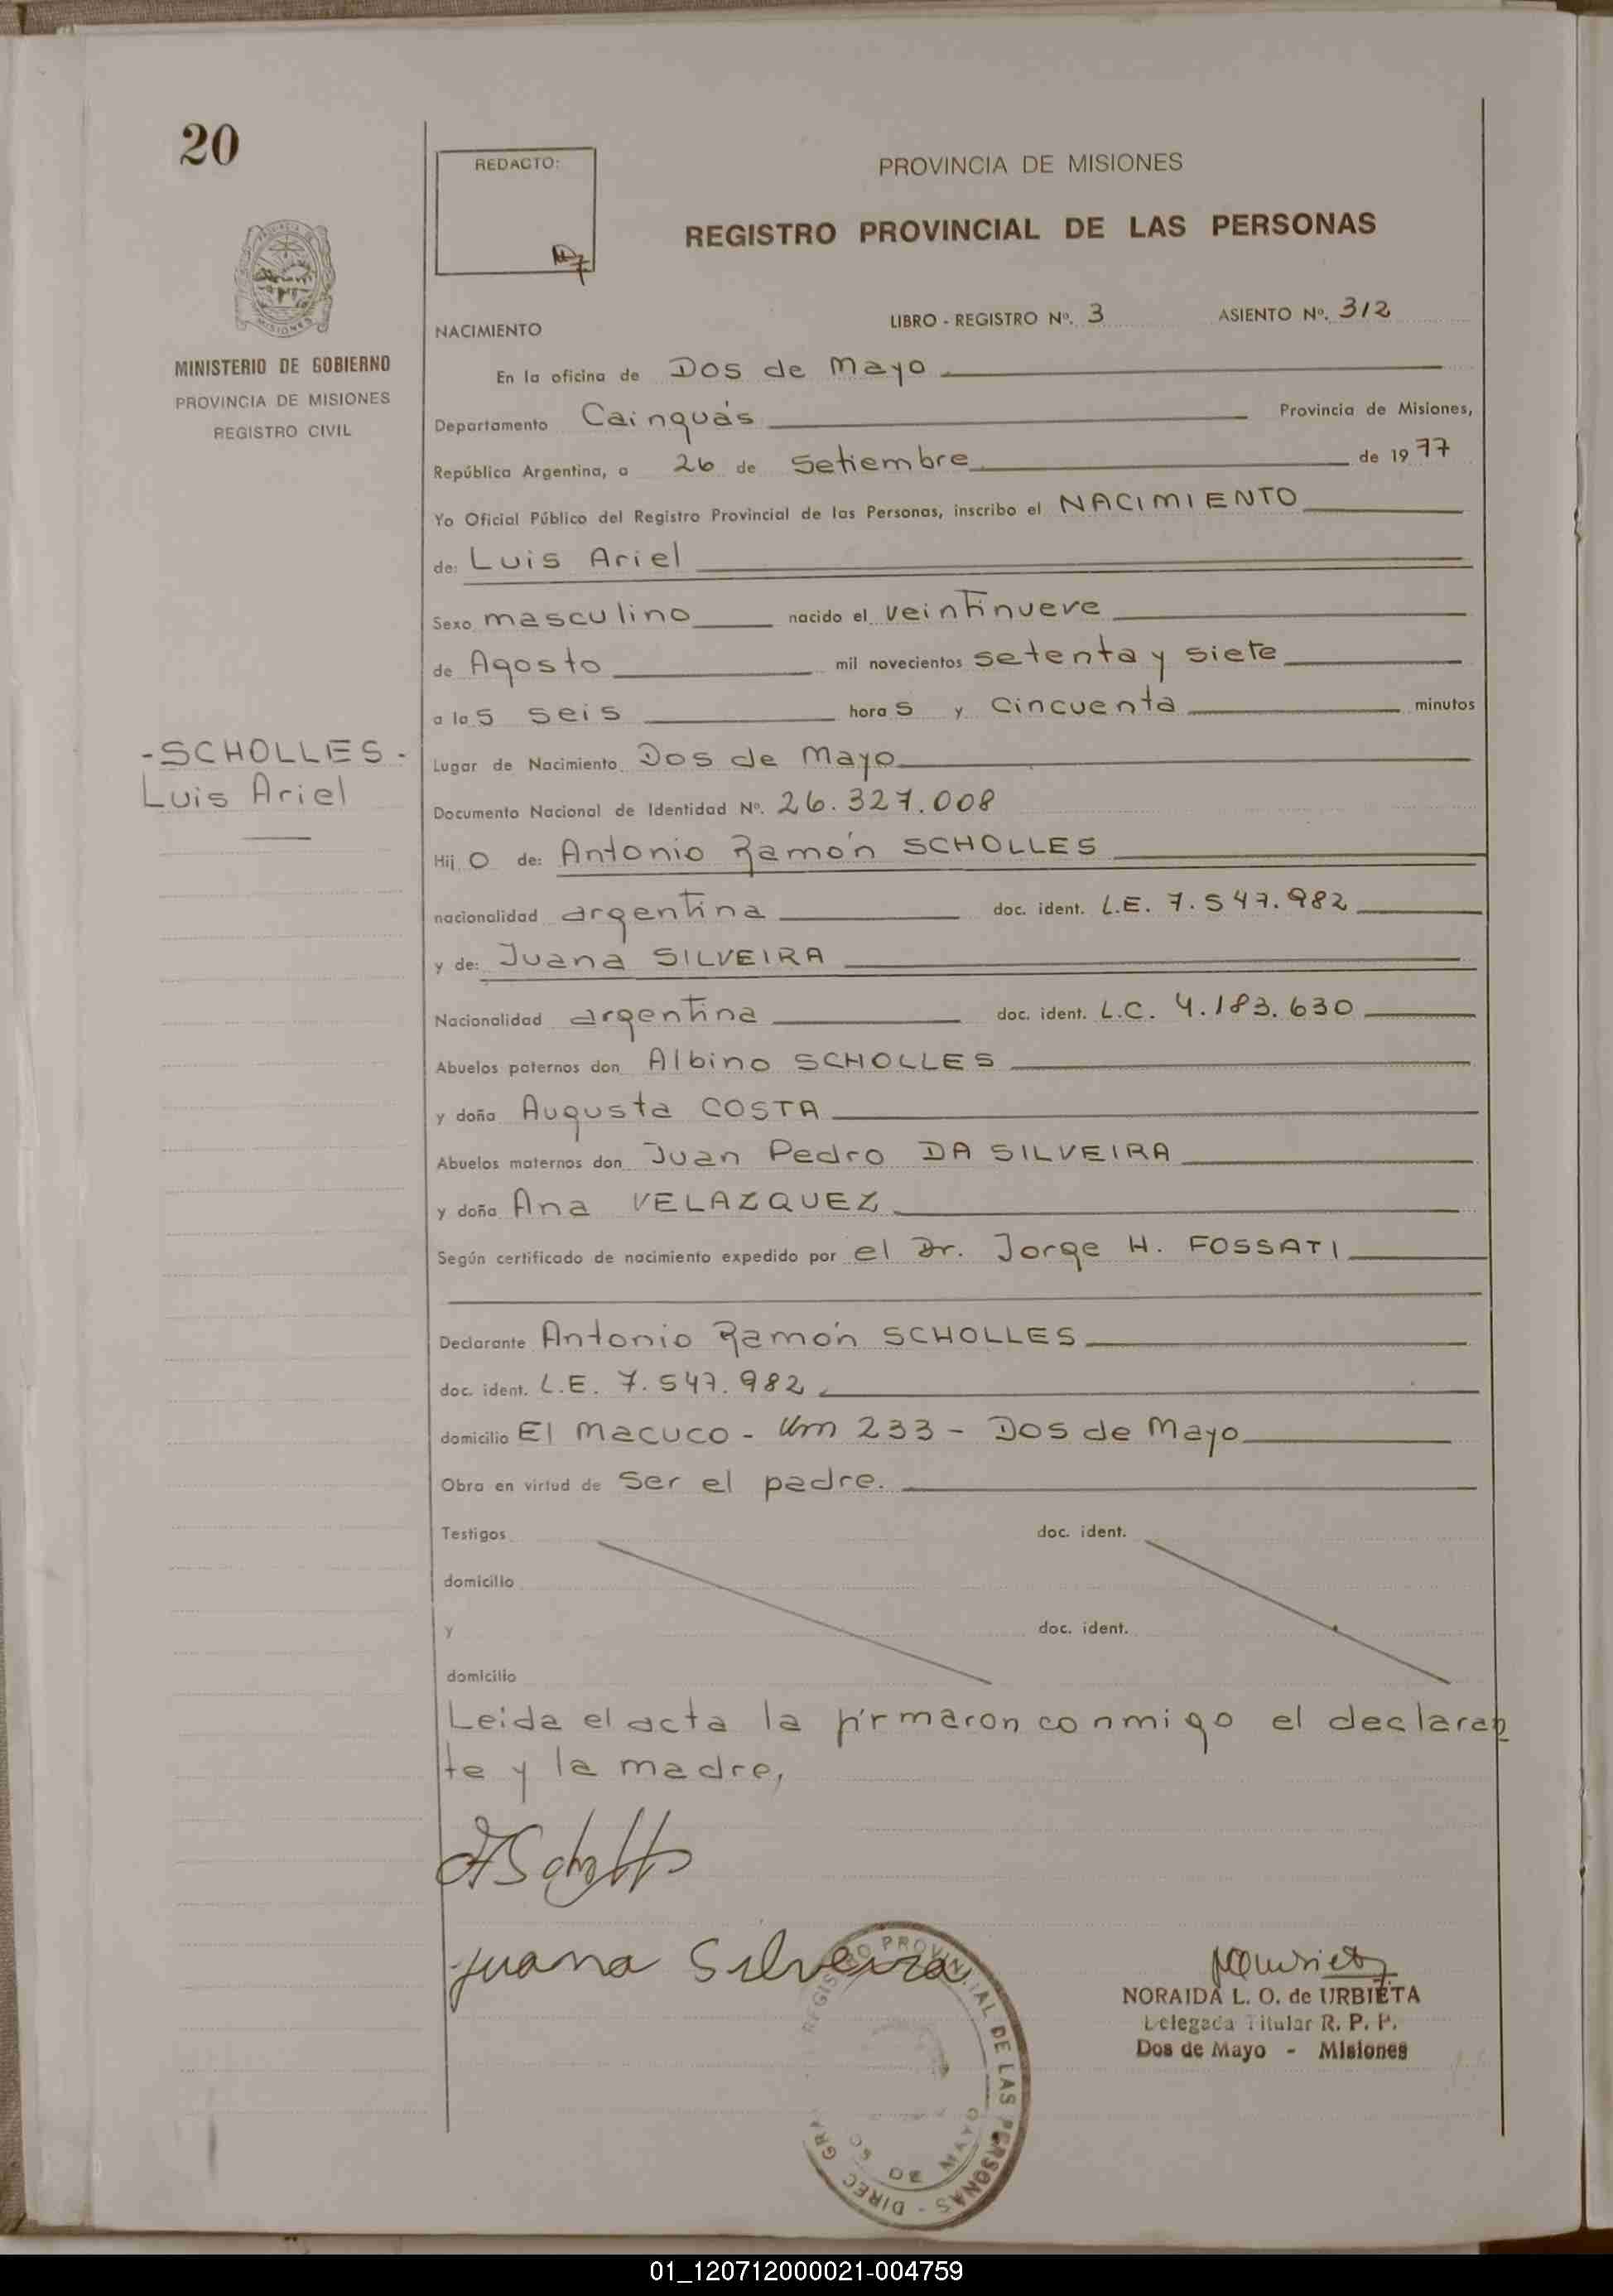 20
REDACTO:
PROVINCIA DE MISIONES
REGISTRO PROVINCIAL DE LAS PERSONAS
MISIONES
MINISTERIO DE GOBIERNO
PROVINCIA DE MISIONES
REGISTRO CIVIL
NACIMIENTO LIBRO - REGISTRO Nº. 3 ASIENTO Nº. 312
En la oficina de Dos de Mayo
Departamento Cainguás Provincia de Misiones,
República Argentina, a 26 de Setiembre de 1977
Yo Oficial Público del Registro Provincial de las Personas, inscribo el NACIMIENTO
de: Luis Ariel
Sexo masculino nacido el veintinueve
de Agosto mil novecientos setenta y siete
a las seis horas y cincuenta minutos
- SCHOLLES -
Luis Ariel
Lugar de Nacimiento Dos de Mayo
Documento Nacional de Identidad Nº. 26.327.008
Hijo de: Antonio Ramón SCHOLLES
nacionalidad argentina doc. ident. L.E. 7.547.982
y de: Juana SILVEIRA
Nacionalidad argentina doc. ident. L.C. 4.183.630
Abuelos paternos don Albino SCHOLLES
y doña Augusta COSTA
Abuelos maternos don Juan Pedro DA SILVEIRA
y doña Ana VELAZQUEZ
Según certificado de nacimiento expedido por el Dr. Jorge H. FOSSATI
Declarante Antonio Ramón SCHOLLES
doc. ident. L.E. 7.547.982
domicilio El Macuco - Km 233 - Dos de Mayo
Obra en virtud de ser el padre.
Testigos doc. ident.
domicilio
y doc. ident.
domicilio
Leida el acta la firmaron conmigo el declaran
te y la madre,
Juana Silveira
REGISTRO PROVINCIAL DE LAS PERSONAS - DIREC GRA
NORAIDA L. O. de URBIETA
Delegada Titular R. P. P.
Dos de Mayo - Misiones
01_120712000021-004759